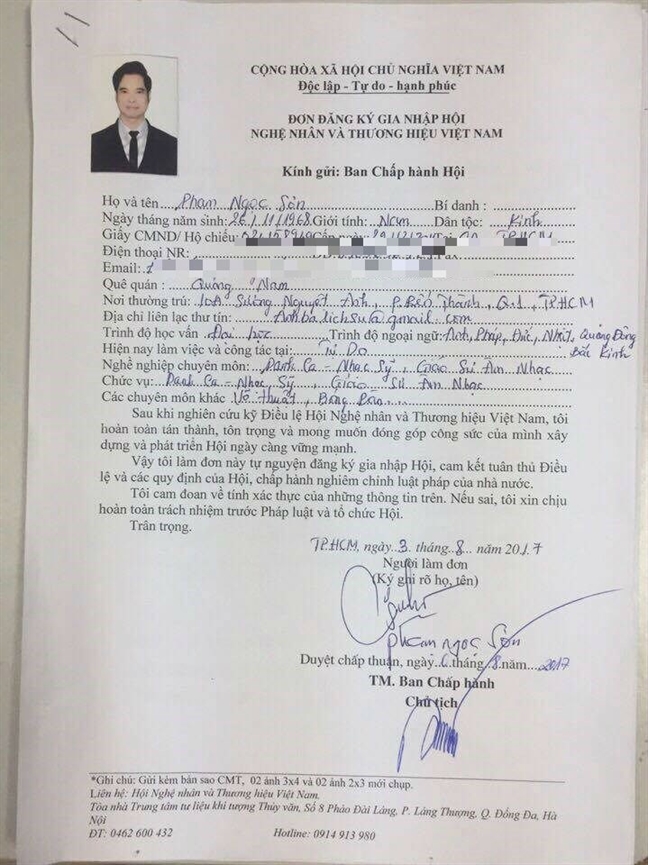 CỘNG HÒA XÃ HỘI CHỦ NGHĨA VIỆT NAM
Độc lập - Tự do - hạnh phúc
ĐƠN ĐĂNG KÝ GIA NHẬP HỘI
NGHỆ NHÂN VÀ THƯƠNG HIỆU VIỆT NAM
Kính gửi: Ban Chấp hành Hội
Họ và tên Phạm Ngọc Sơn Bí danh :
Ngày tháng năm sinh: 26/11/1968 Giới tính: Nam Dân tộc: Kinh
Giấy CMND/ Hộ chiếu: TP.HCM
Điện thoại NR:
Email:
Quê quán : Quảng Nam
Nơi thường trú: 10A Sương Nguyệt Ánh, P. Bến Thành, Q.1, TP.HCM
Địa chỉ liên lạc thư tín: Anhbalichsu@gmail.com
Trình độ học vấn Đại học Trình độ ngoại ngữ: Anh, Pháp, Đức, Nhật, Quảng Đông
Hiện nay làm việc và công tác tại: Tự Do Bắc Kinh
Nghề nghiệp chuyên môn: Danh Ca - Nhạc Sỹ, Giáo Sư Âm Nhạc
Chức vụ: Danh Ca - Nhạc Sỹ, Giáo Sư Âm Nhạc
Các chuyên môn khác Võ thuật, Bóng Bàn
Sau khi nghiên cứu kỹ Điều lệ Hội Nghệ nhân và Thương hiệu Việt Nam, tôi
hoàn toàn tán thành, tôn trọng và mong muốn đóng góp công sức của mình xây
dựng và phát triển Hội ngày càng vững mạnh.
Vậy tôi làm đơn này tự nguyện đăng ký gia nhập Hội, cam kết tuân thủ Điều
lệ và các quy định của Hội, chấp hành nghiêm chỉnh luật pháp của nhà nước.
Tôi cam đoan về tính xác thực của những thông tin trên. Nếu sai, tôi xin chịu
hoàn toàn trách nhiệm trước Pháp luật và tổ chức Hội.
Trân trọng.
TP.HCM, ngày 3 tháng 8 năm 2017
Người làm đơn
(Ký ghi rõ họ, tên)
Phạm Ngọc Sơn
Duyệt chấp thuận, ngày 6 tháng 8 năm 2017
TM. Ban Chấp hành
Chủ tịch
*Ghi chú: Gửi kèm bản sao CMT, 02 ảnh 3x4 và 02 ảnh 2x3 mới chụp.
Liên hệ: Hội Nghệ nhân và Thương hiệu Việt Nam.
Tòa nhà Trung tâm tư liệu khí tượng Thủy văn, Số 8 Pháo Đài Láng, P. Láng Thượng, Q. Đống Đa, Hà
Nội
ĐT: 0462 600 432 Hotline: 0914 913 980